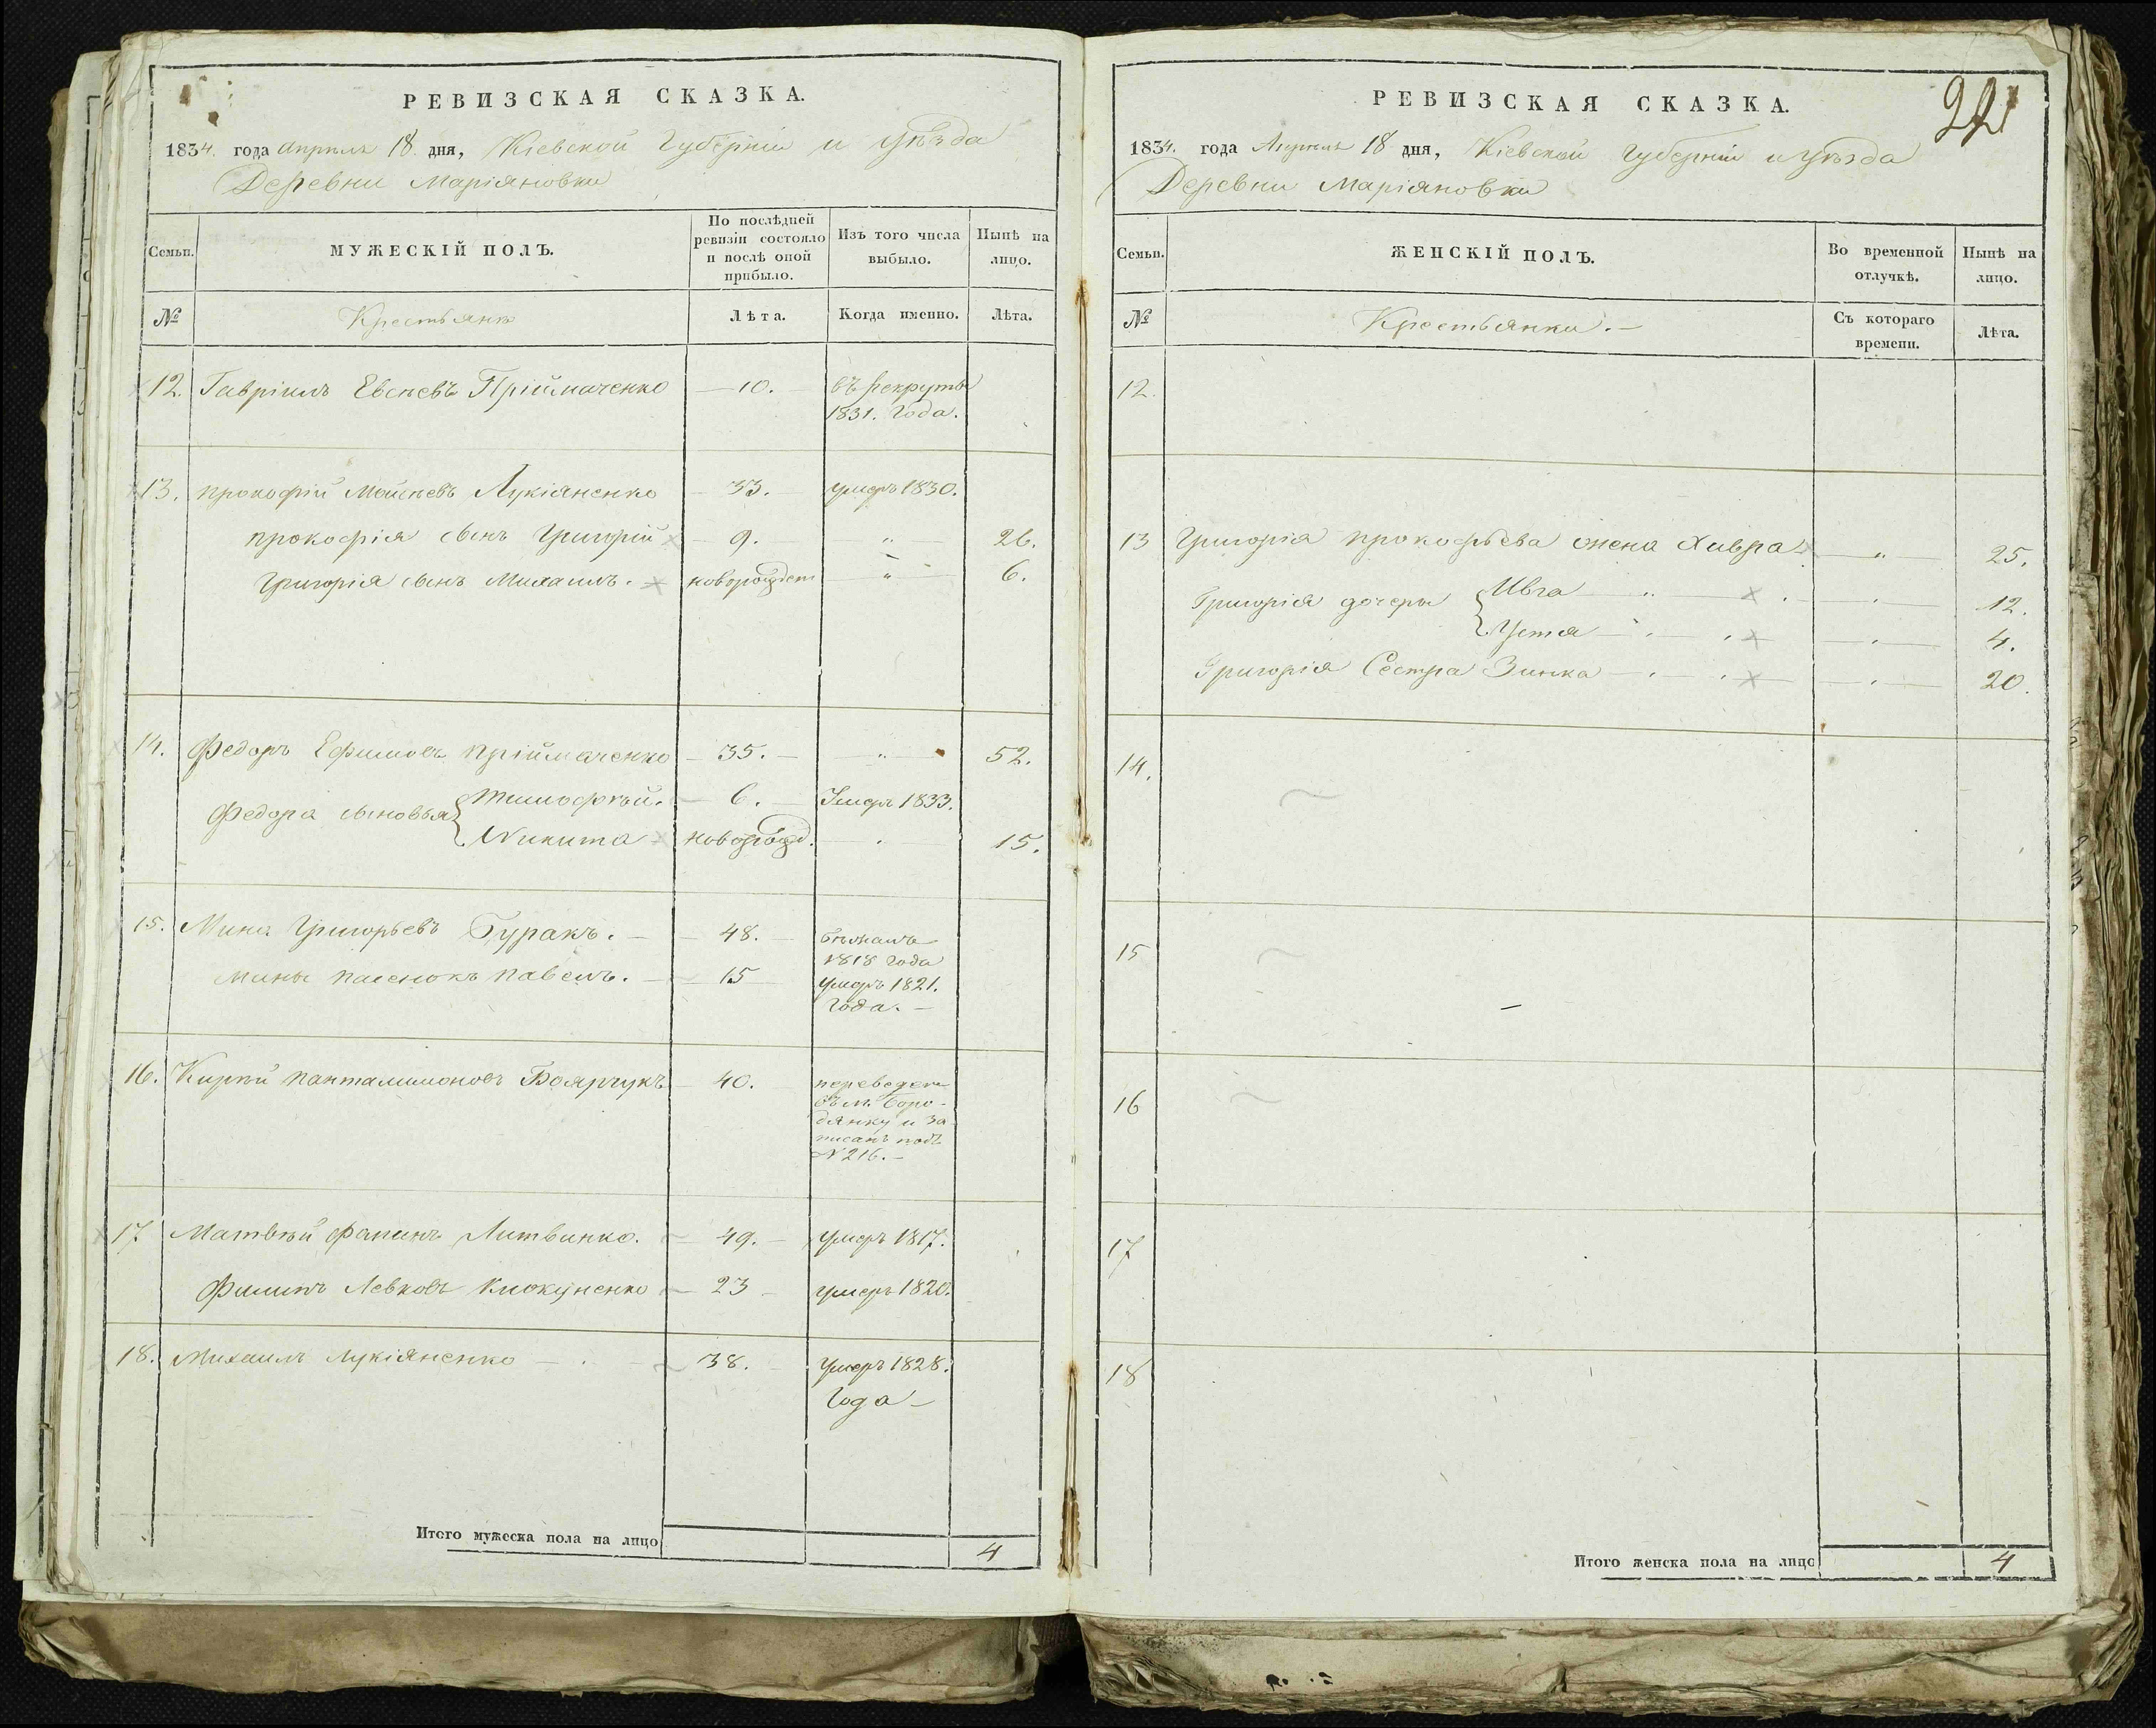 РЕВИЗСКАЯ СКАЗКА.
1834. года Апрѣля 18 дня, Кіевской Губерніи и уѣзда
Деревни Маріяновки
Семьи.
МУЖЕСКІЙ ПОЛЪ.
По послѣдней ревизіи состояло и послѣ оной прибыло.
Изъ того числа выбыло.
Нынѣ на лицо.
№
Крестьянъ
Лѣта.
Когда именно.
Лѣта.
12. Гавріилъ Евсѣевъ Пріймаченко 10. въ рекруты
1831. Года.
13. прокофій Моисѣевъ Лукіяненко 33. умеръ 1830.
прокофія сынъ Григорій 9. " 26.
Григорія сынъ Михаилъ. новорожден " 6.
14. Федоръ Ефимовъ Пріймаченко 35. " 52.
Федора сыновья Тимофѣй. 6. Умеръ 1833.
Никита новорожд. " 15.
15. Мина Григорьевъ Буракъ. 48. бѣжалъ
1818 года
Мины пасенокъ павелъ. 15 умеръ 1821.
года.
16. Кирѣй панталимоновъ Боярчукъ 40. переведенъ
въ м. Боро-
дянку и за
писанъ подъ
№ 216.
17 Матвѣй Литвинко. 49. умеръ 1817.
Филипъ Левковъ 23 умеръ 1820.
18. Михаилъ Лукіяненко 38. умеръ 1828.
Года
Итого мужеска пола на лицо 4
РЕВИЗСКАЯ СКАЗКА.
1834. года Апрѣля 18 дня, Кіевской Губерніи и уѣзда
Деревни Маріяновки
Семьи.
ЖЕНСКІЙ ПОЛЪ.
Во временной отлучкѣ.
Нынѣ на лицо.
№
Крестьянки.
Съ котораго времени.
Лѣта.
12.
13 Григорія прокофьева жена Хивря " 25.
Григорія дочери Ивга " 12.
Устя " 4.
Григорія Сестра Зинка " 20.
14.
15
16
17
18
Итого женска пола на лицо 4